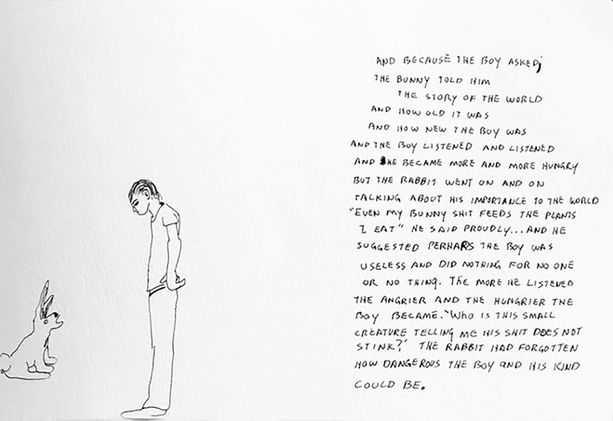 AND BECAUSE THE BOY ASKED;
THE BUNNY TOLD HIM
THE STORY OF THE WORLD
AND HOW OLD IT WAS
AND HOW NEW THE BOY WAS
AND THE BOY LISTENED AND LISTENED
AND HE BECAME MORE AND MORE HUNGRY
BUT THE RABBIT WENT ON AND ON
TALKING ABOUT HIS IMPORTANCE TO THE WORLD
"EVEN MY BUNNY SHIT FEEDS THE PLANTS
I EAT" HE SAID PROUDLY... AND HE
SUGGESTED PERHAPS THE BOY WAS
USELESS AND DID NOTHING FOR NO ONE
OR NO THING. THE MORE HE LISTENED
THE ANGRIER AND THE HUNGRIER THE
BOY BECAME. "WHO IS THIS SMALL
CREATURE TELLING ME HIS SHIT DOES NOT
STINK?" THE RABBIT HAD FORGOTTEN
HOW DANGEROUS THE BOY AND HIS KIND
COULD BE.